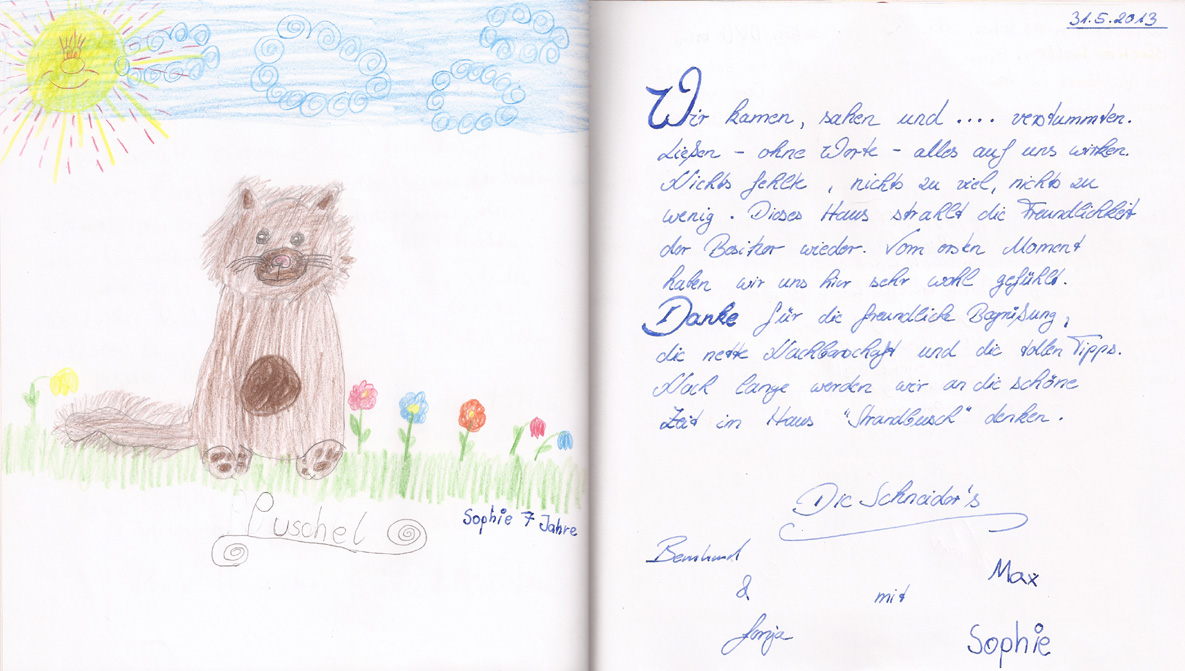 Puschel
Sophie 7 Jahre
31.5.2013
Wir kamen, sahen und .... verstummten.
Ließen - ohne Worte - alles auf uns wirken.
Nichts fehlte, nichts zu viel, nichts zu
wenig. Dieses Haus strahlt die Freundlichkeit
der Besitzer wieder. Vom ersten Moment
haben wir uns hier sehr wohl gefühlt.
Danke für die freundliche Begrüßung,
die nette Nachbarschaft und die tollen Tipps.
Noch lange werden wir an die schöne
Zeit im Haus "Strandbusch" denken.
Die Schneider's
Bernhard
&
Sonja
mit
Max
Sophie